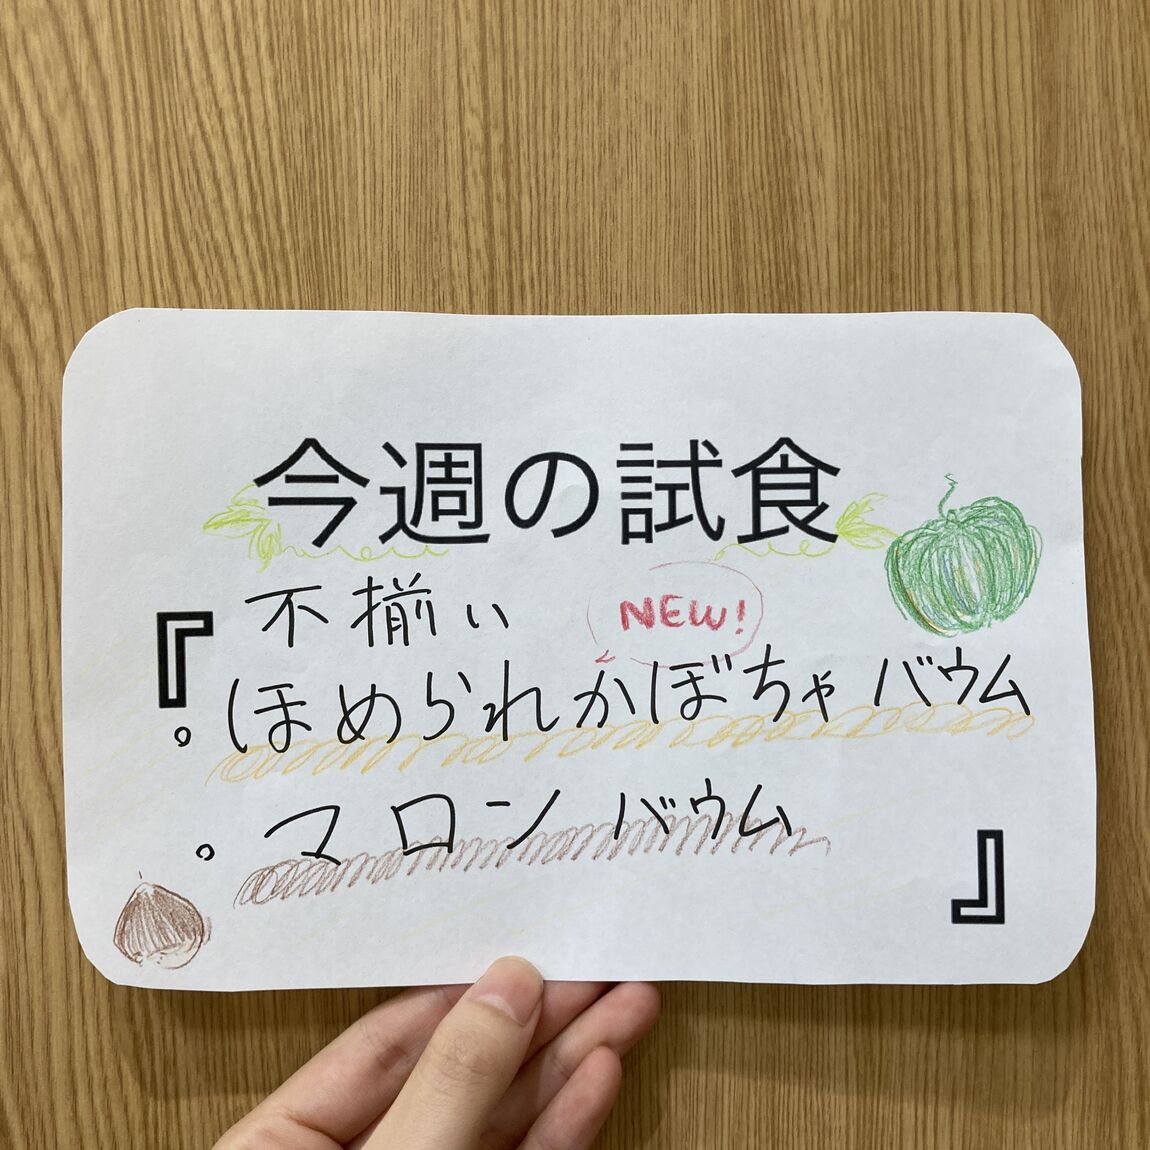 今週の試食
『不揃い
NEW!
・ほめられかぼちゃバウム
・マロンバウム
』